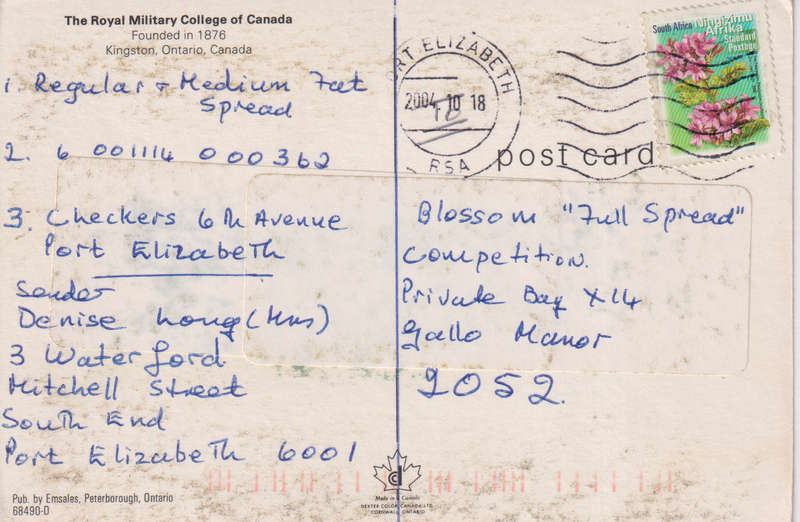 The Royal Military College of Canada
Founded in 1876
Kingston, Ontario, Canada
1. Regular + Medium Fat
Spread
2. 6 001114 000362
3. Checkers 6th Avenue
Port Elizabeth
Sender
Denise Long (Mrs)
3 Waterford
Mitchell Street
South End
Port Elizabeth 6001
Pub. by Emsales, Peterborough, Ontario
68490-D
ORT ELIZABETH
2004 10 18
RSA
South Africa
Ningizimu
Afrika
Standard
Postage
post card
Blossom "Full Spread"
Competition.
Private Bag X14
Gallo Manor
2052.
Made in Canada
DEXTER COLOR CANADA LTD.
CORNWALL, ONTARIO